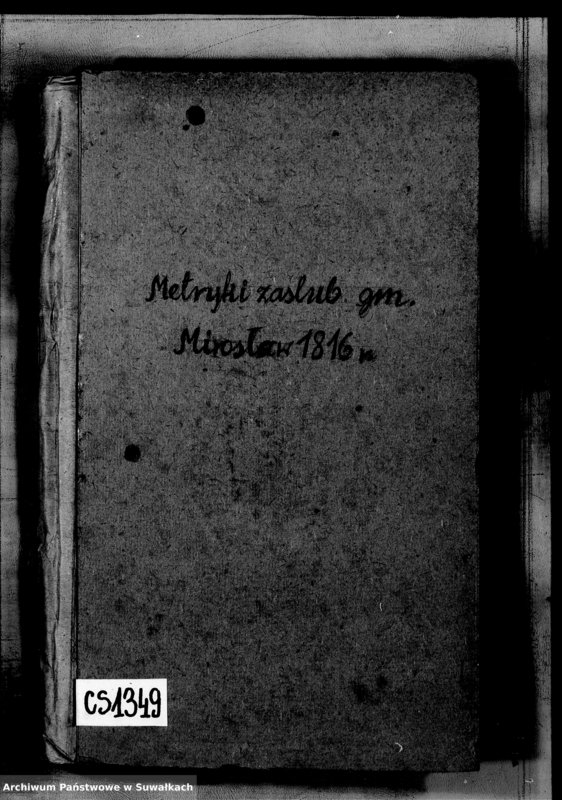 Metryki zaslub. gm.
Mirosław 1816 r.
CS1349
Archiwum Państwowe w Suwałkach